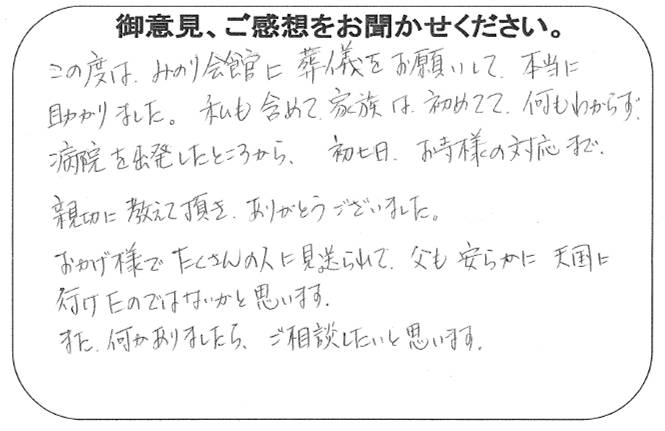 御意見、ご感想をお聞かせください。
この度は、みのり会館に葬儀をお願いして、本当に
助かりました。私も含めて、家族は、初めてで、何もわからず、
病院を出発したところから、初七日、お寺様の対応まで、
親切に教えて頂き、ありがとうございました。
おかげ様でたくさんの人に見送られて、父も安らかに天国に
行けたのではないかと思います。
また、何かありましたら、ご相談したいと思います。